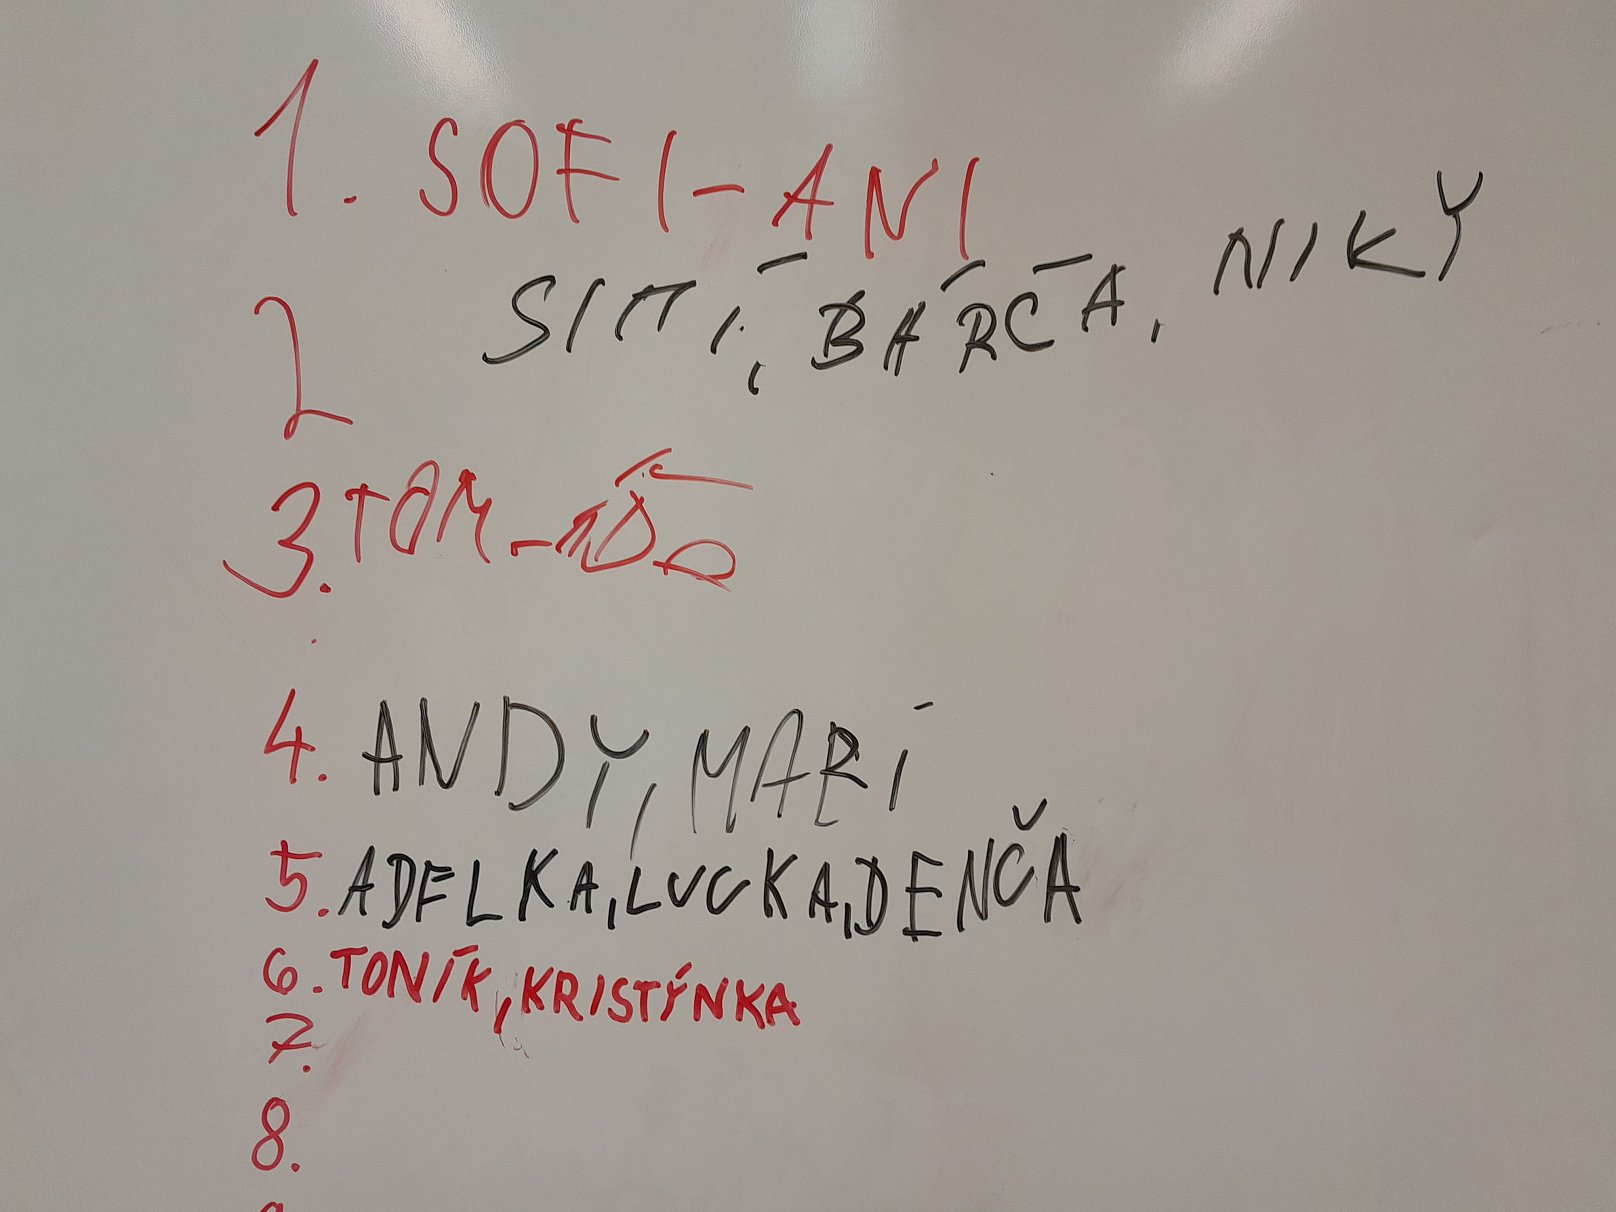 1. SOFI-ANI
2 SIMÍ, BÁRČA, NIKÝ
3. TOM -
4. ANDY, MARÍ
5. ADELKA, LUCKA, DENČA
6. TONÍK, KRISTÝNKA
7.
8.